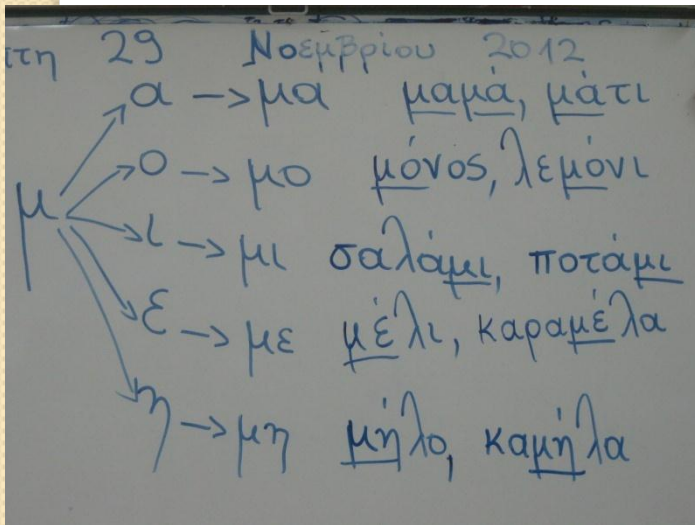 29 Νοεμβρίου 2012
α → μα μαμά, μάτι
ο → μο μόνος, λεμόνι
μ
ι → μι σαλάμι, ποτάμι
ε → με μέλι, καραμέλα
η → μη μήλο, καμήλα